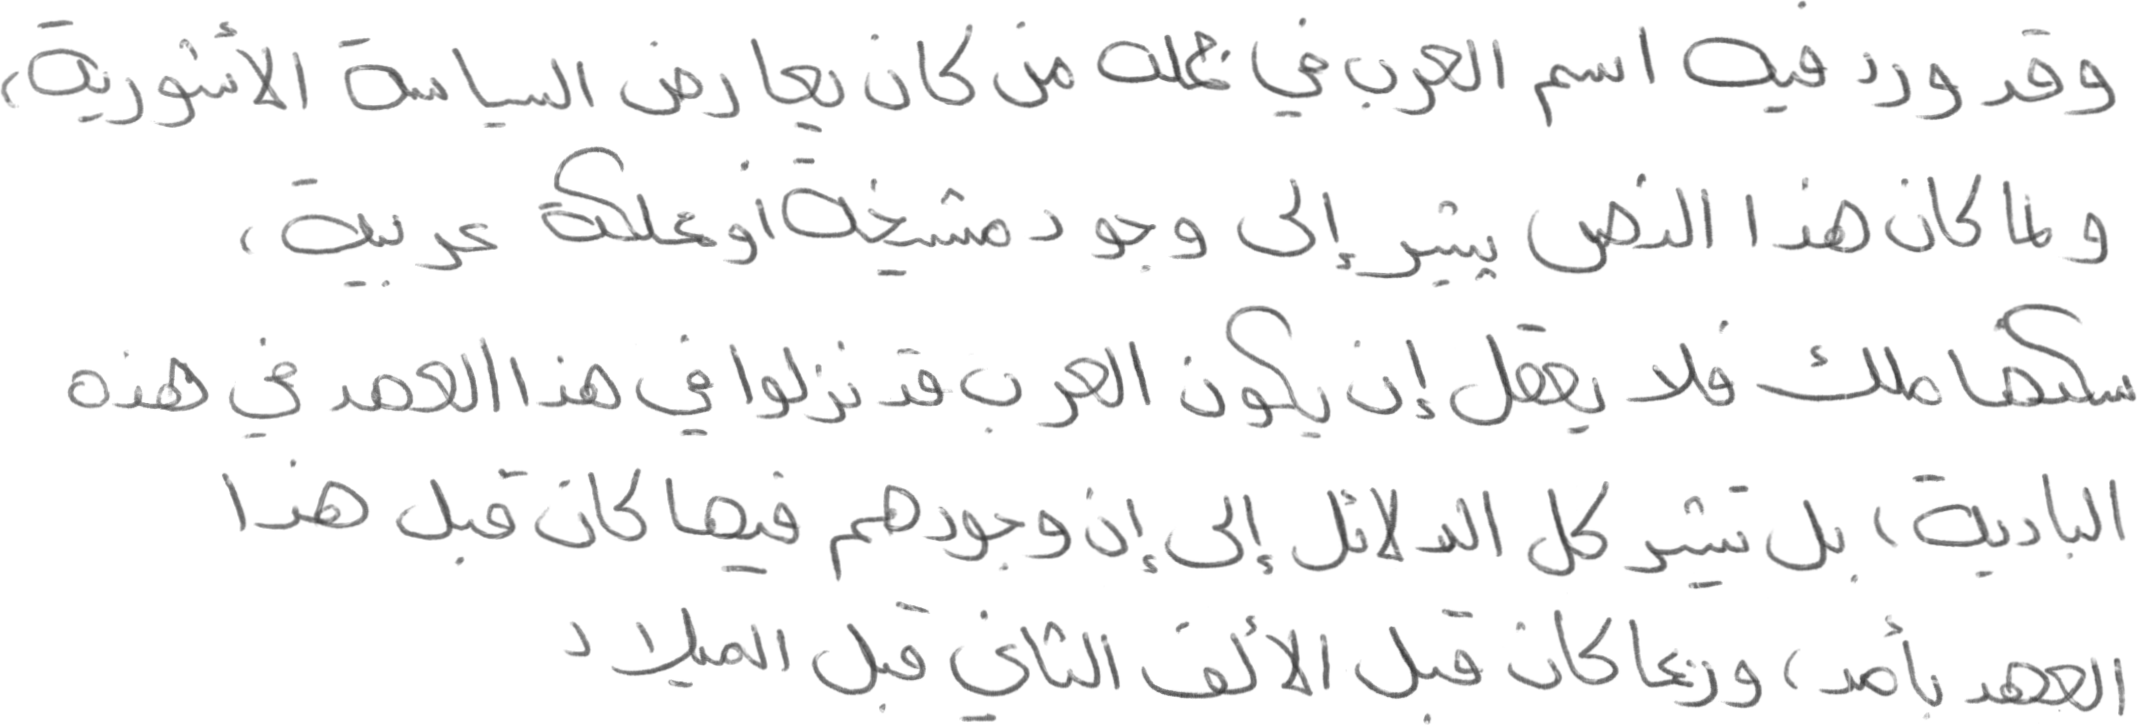 وقد ورد فيه اسم العرب في جملة من كان يعارض السياسة الأشورية،
ولما كان هذا النص يشير إلى وجود مشيخة أو مملكة عربية،
يحكمها ملك فلا يعقل إن يكون العرب قد نزلوا في هذا العهد في هذه
البادية، بل تشير كل الدلائل إلى إن وجودهم فيها كان قبل هذا
العهد بأمد، وربما كان قبل الألف الثاني قبل الميلاد